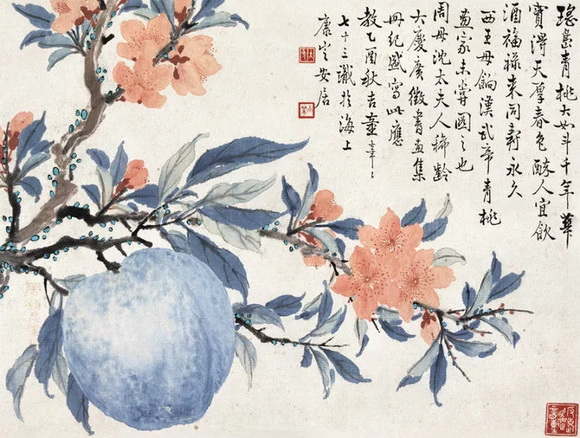 瑤島青桃大如斗千年華
實得天厚春色酡人宜飲
酒福祿來同壽永久
西王母餉漢武帝青桃
畫家未嘗圖之也
周母沈太夫人稀齡
大慶廣徵書畫集
冊紀盛寫此應
教乙酉秋吉童
七十三識於海上
康定安居